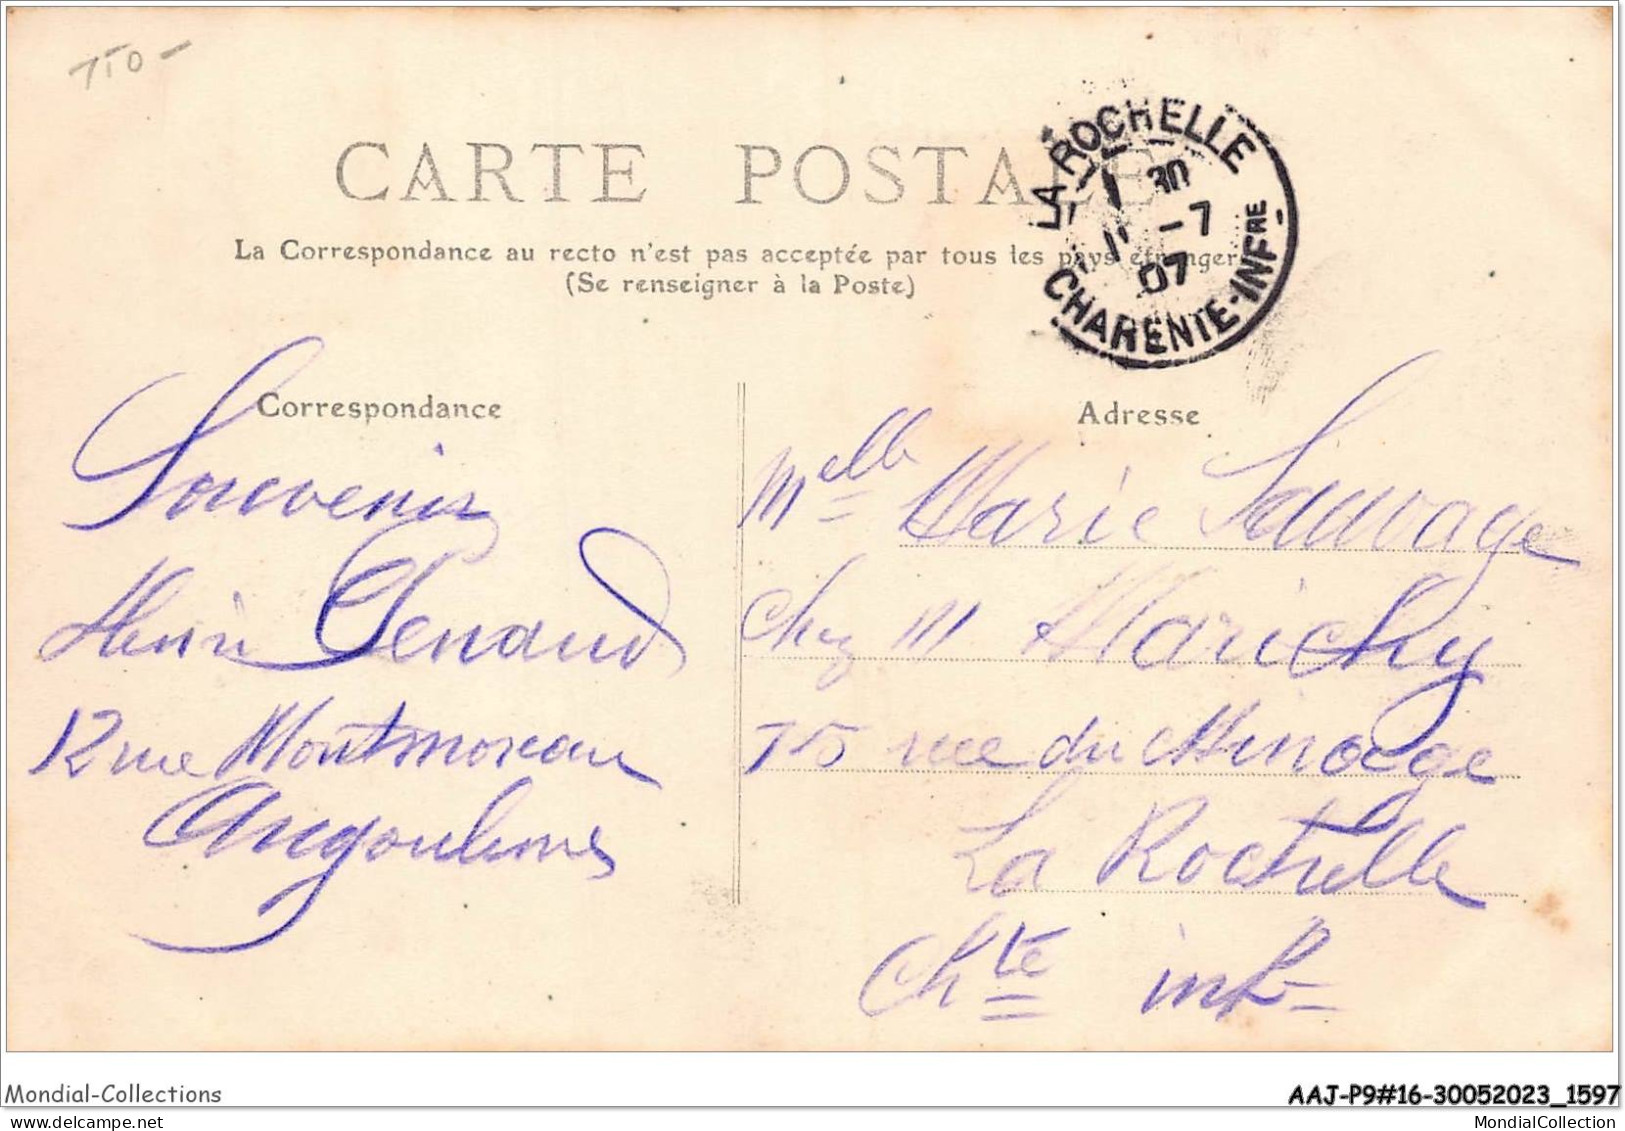 750 -
CARTE POSTALE
La Correspondance au recto n'est pas acceptée par tous les pays étrangers
(Se renseigner à la Poste)
LA ROCHELLE
30
-7
07
CHARENTE-INFRE
Correspondance
Souvenir
Henri Penaud
12 rue Montmoreau
Angoulême
Adresse
Melle Marie Sauvage
Chez M Marichy
75 rue du Minage
La Rochelle
Chte infre
Mondial-Collections
AAJ-P9#16-30052023_1597
www.delcampe.net
MondialCollection